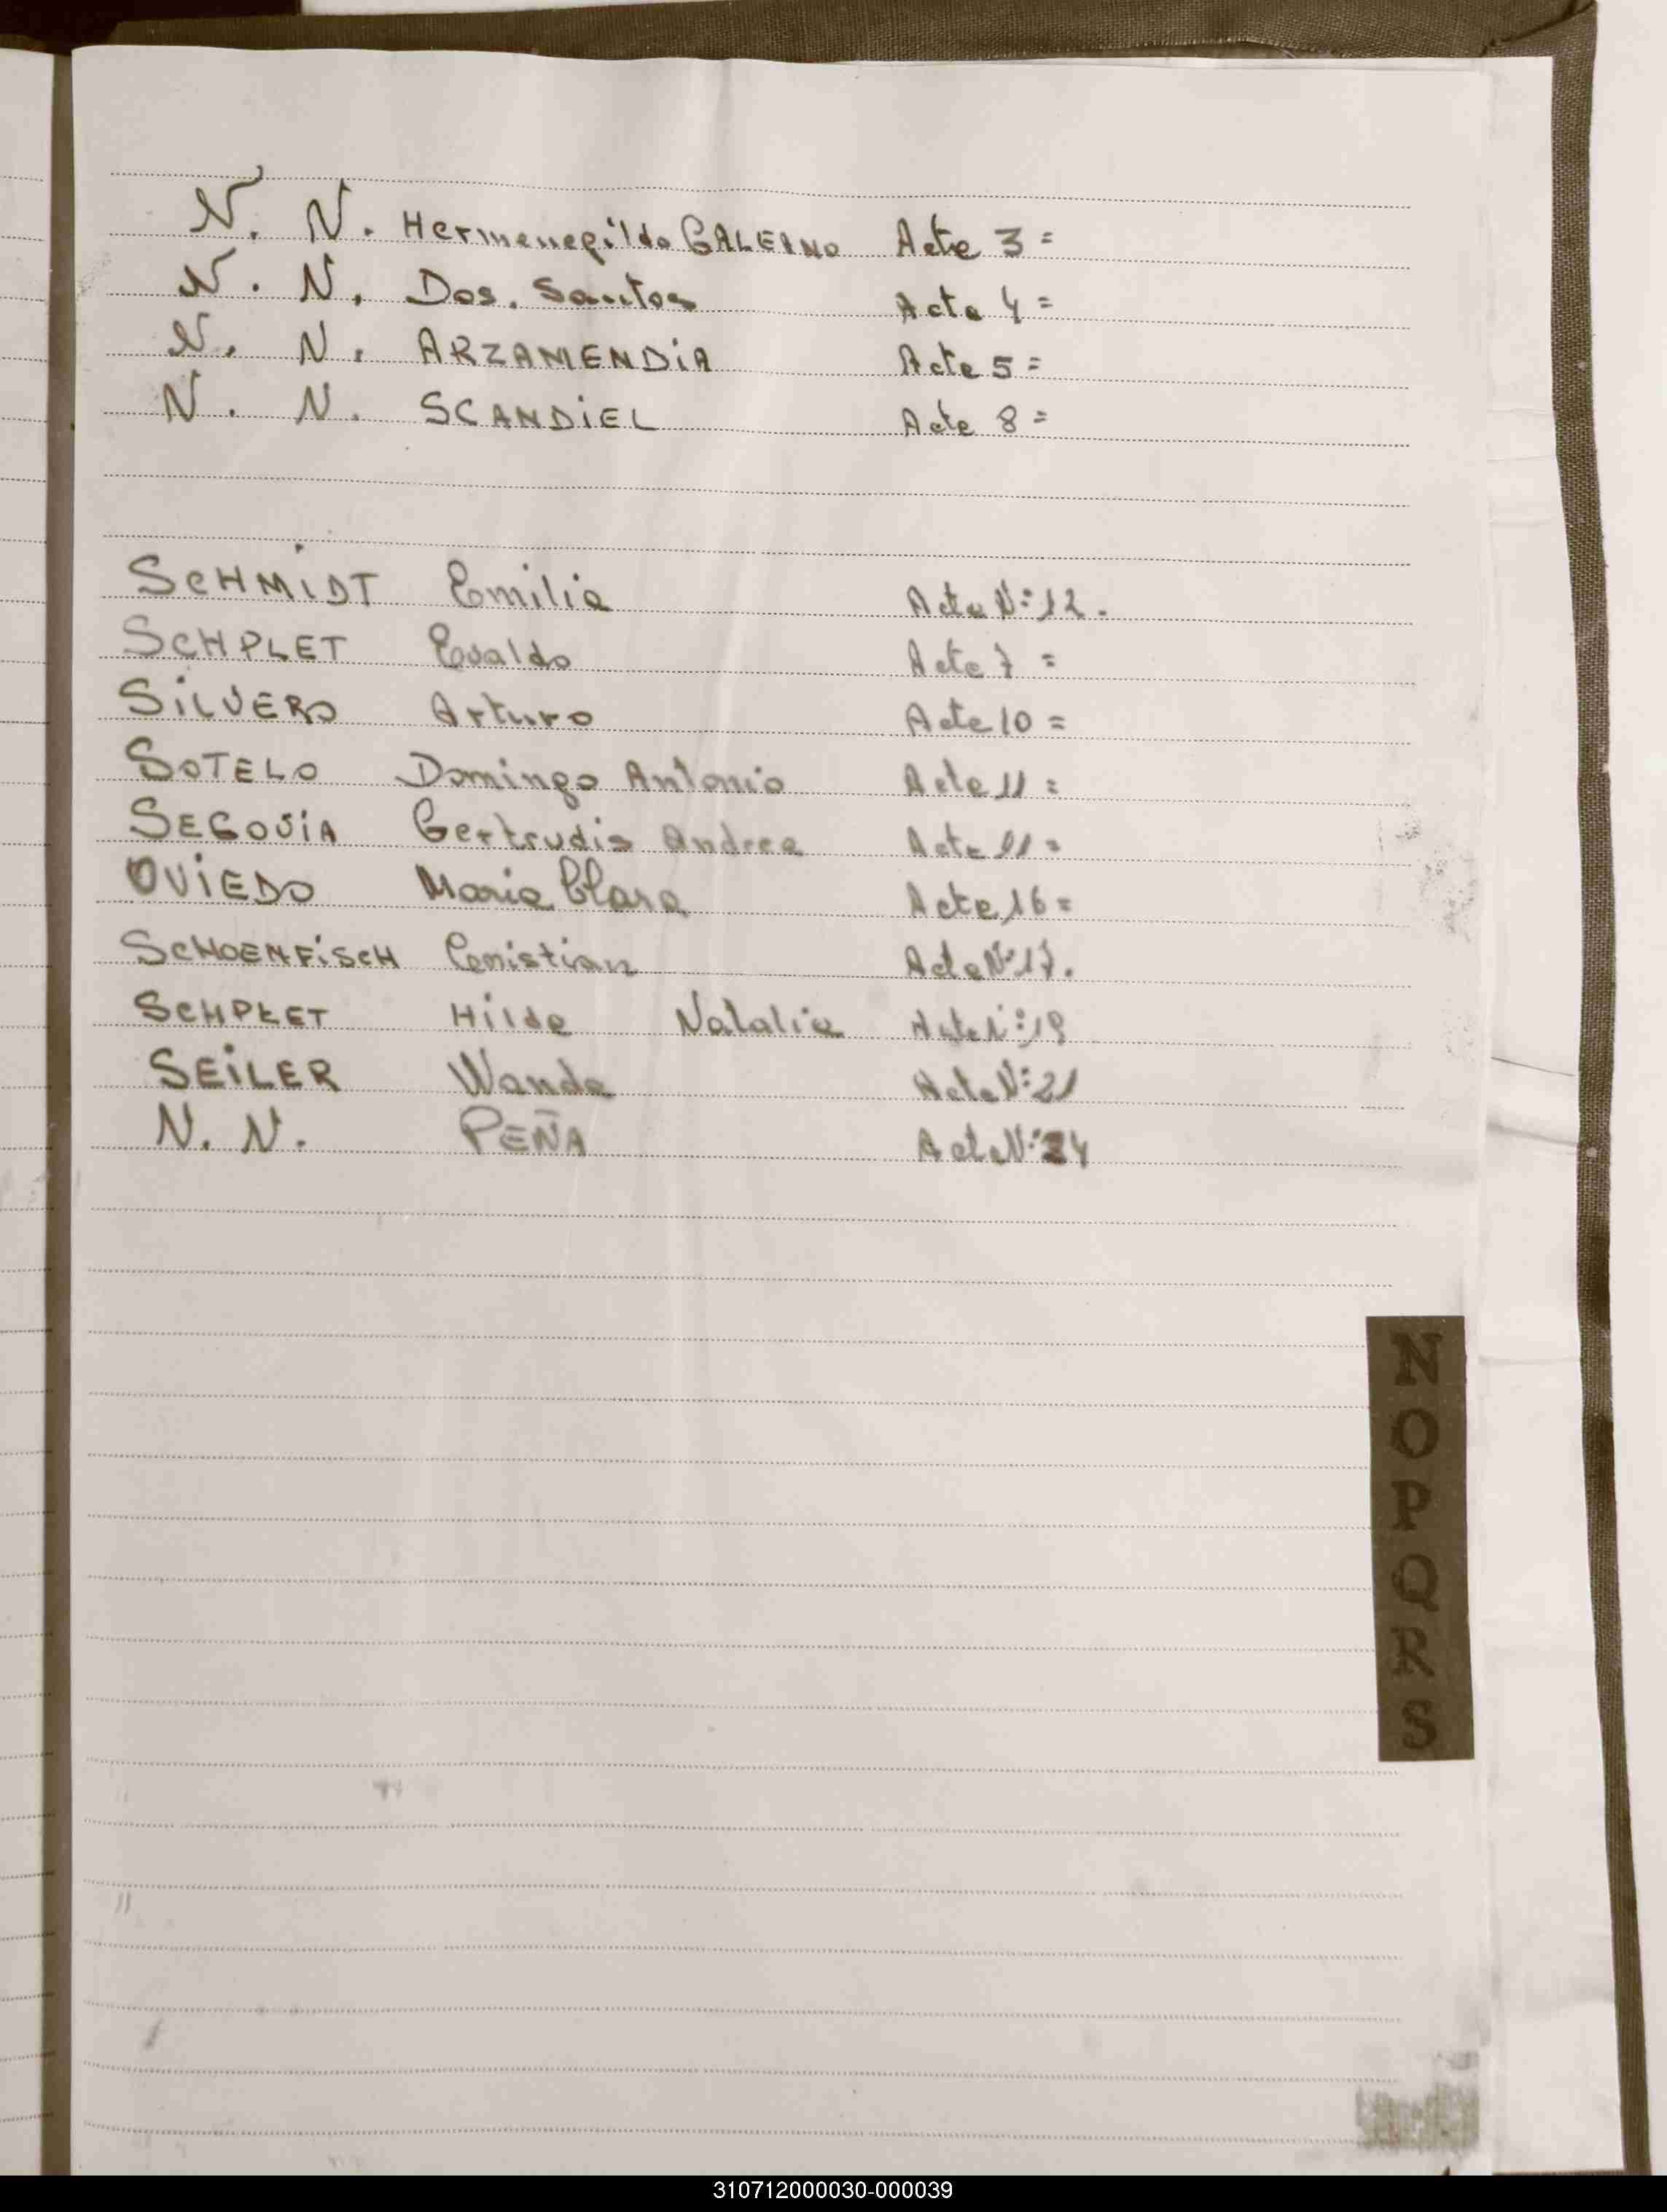 N. N. Hermenegildo GALEANO Acta 3=
N. N. Dos. Santos Acta 4=
N. N. ARZAMENDiA Acta 5=
N. N. SCANDiEL Acta 8=
SCHMIDT Emilia Acta Nº 12.
SCHPLET Evaldo Acta 7 =
SiLVERO Arturo Acta 10 =
SOTELO Domingo Antonio Acta 11 =
SEGOViA Gertrudis Andrea Acta 11 =
OViEDO Maria Clara Acta 16 =
SCHOENFiSCH Cristian Acta Nº 17.
SCHPLET Hilda Natalia Acta Nº 19
SEiLER Wanda Acta Nº 21
N. N. PEÑA Acta Nº 24
N
O
P
Q
R
S
310712000030-000039